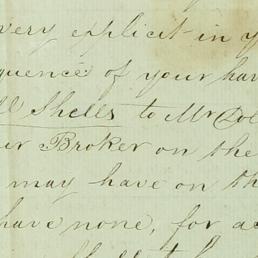 very explicit in y
quence of your hav
ll Shells to Mr Col
ur Broker on the
may have on th
have none, for a